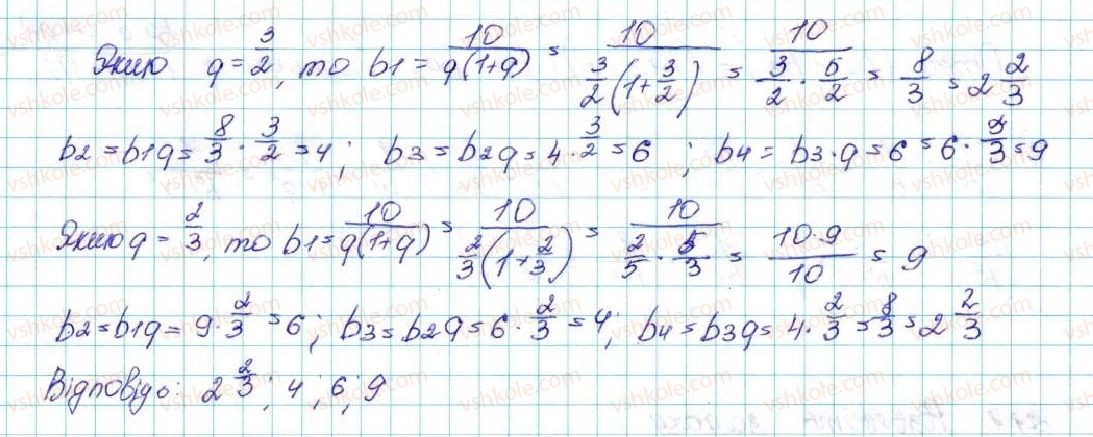 Якщо q = 3/2, то b1 = 10/(q(1+q)) = 10/(3/2(1+3/2)) = 10/(3/2 · 5/2) = 8/3 = 2 2/3
b2 = b1q = 8/3 · 3/2 = 4; b3 = b2q = 4 · 3/2 = 6; b4 = b3 · q = 6 = 6 · 3/3 = 9
Якщо q = 2/3, то b1 = 10/(q(1+q)) = 10/(2/3(1+2/3)) = 10/(2/5 · 5/3) = 10·9/10 = 9
b2 = b1q = 9 · 2/3 = 6; b3 = b2q = 6 · 2/3 = 4; b4 = b3q = 4 · 2/3 = 8/3 = 2 2/3
Відповідь: 2 2/3; 4; 6; 9